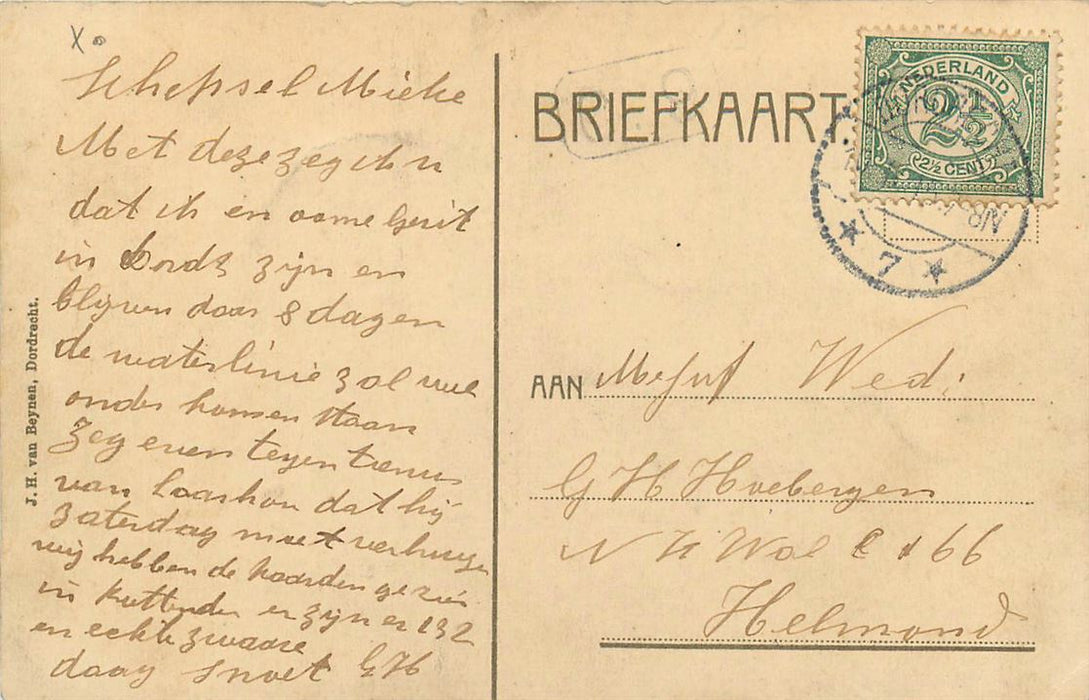 Schepsel Mieke
Met deze zeg ik u
dat ik en oome Gerit
in Dordt zijn en
blijven daar 8 dagen
de waterlinie zal wel
onder komen staan
zeg even tegen
van dat hij
zaterdag moet
wij hebben de paarden gezien
in en zijn er 132
en echte zware
daag snoet GH
J. H. van Beynen, Dordrecht.
BRIEFKAART
NEDERLAND
2½
2½ CENT
7
AAN Mejuf Wed:
G H Hoebergen
66
Helmond